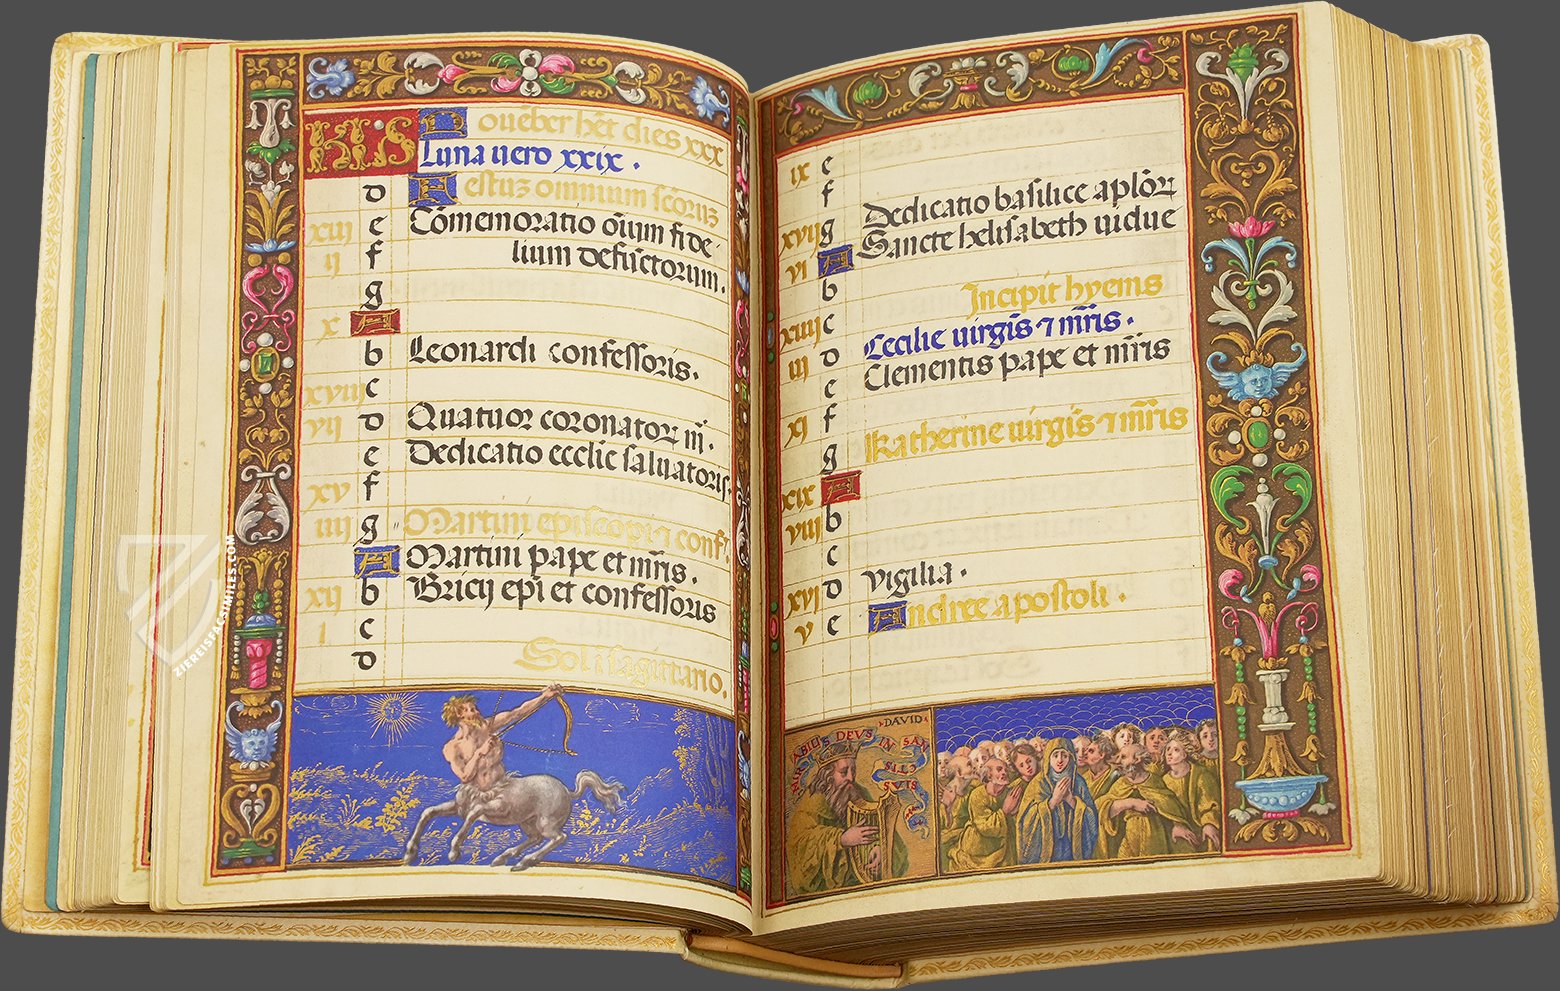 KLS Nouẽber hẽt dies xxx
Luna uero xxix .
d Festuz omnium sc̃oruz
xiii e Cõmemoratio oĩum fide
ii f lium defũctorum .
g
x A
b Leonardi confessoris .
xviii c
vii d Quatuor coronatorꝝ m̃ .
e Dedicatio ecclie saluatoris .
xv f
iiii g Martini episcopi & conf .
A Martini pape et mr̃is .
xii b Bricij epĩ et confessoris
i c
d Sol ĩ sagittario .
ix e
f Dedicatio basilice aplõꝝ
xvii g Sancte helisabeth uidue
vi A
b Incipit hyems
xiiii c Cecilie uirgĩs ⁊ mr̃is .
iii d Clementis pape et mr̃is
e
xi f Katherine uirgĩs ⁊ mr̃is
g
xix A
viii b
c
xvi d Vigilia .
v e Andree apostoli .
DAVID
MIRABILIS DEVS IN SAN
CTIS
SVIS
ZIEREISFACSIMILES.COM